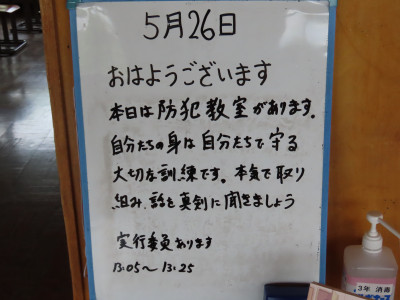 5月26日
おはようございます
本日は防犯教室があります。
自分たちの身は自分たちで守る
大切な訓練です。本気で取り
組み、話を真剣に聞きましょう
実行委員あります
13:05～13:25
3年 消毒